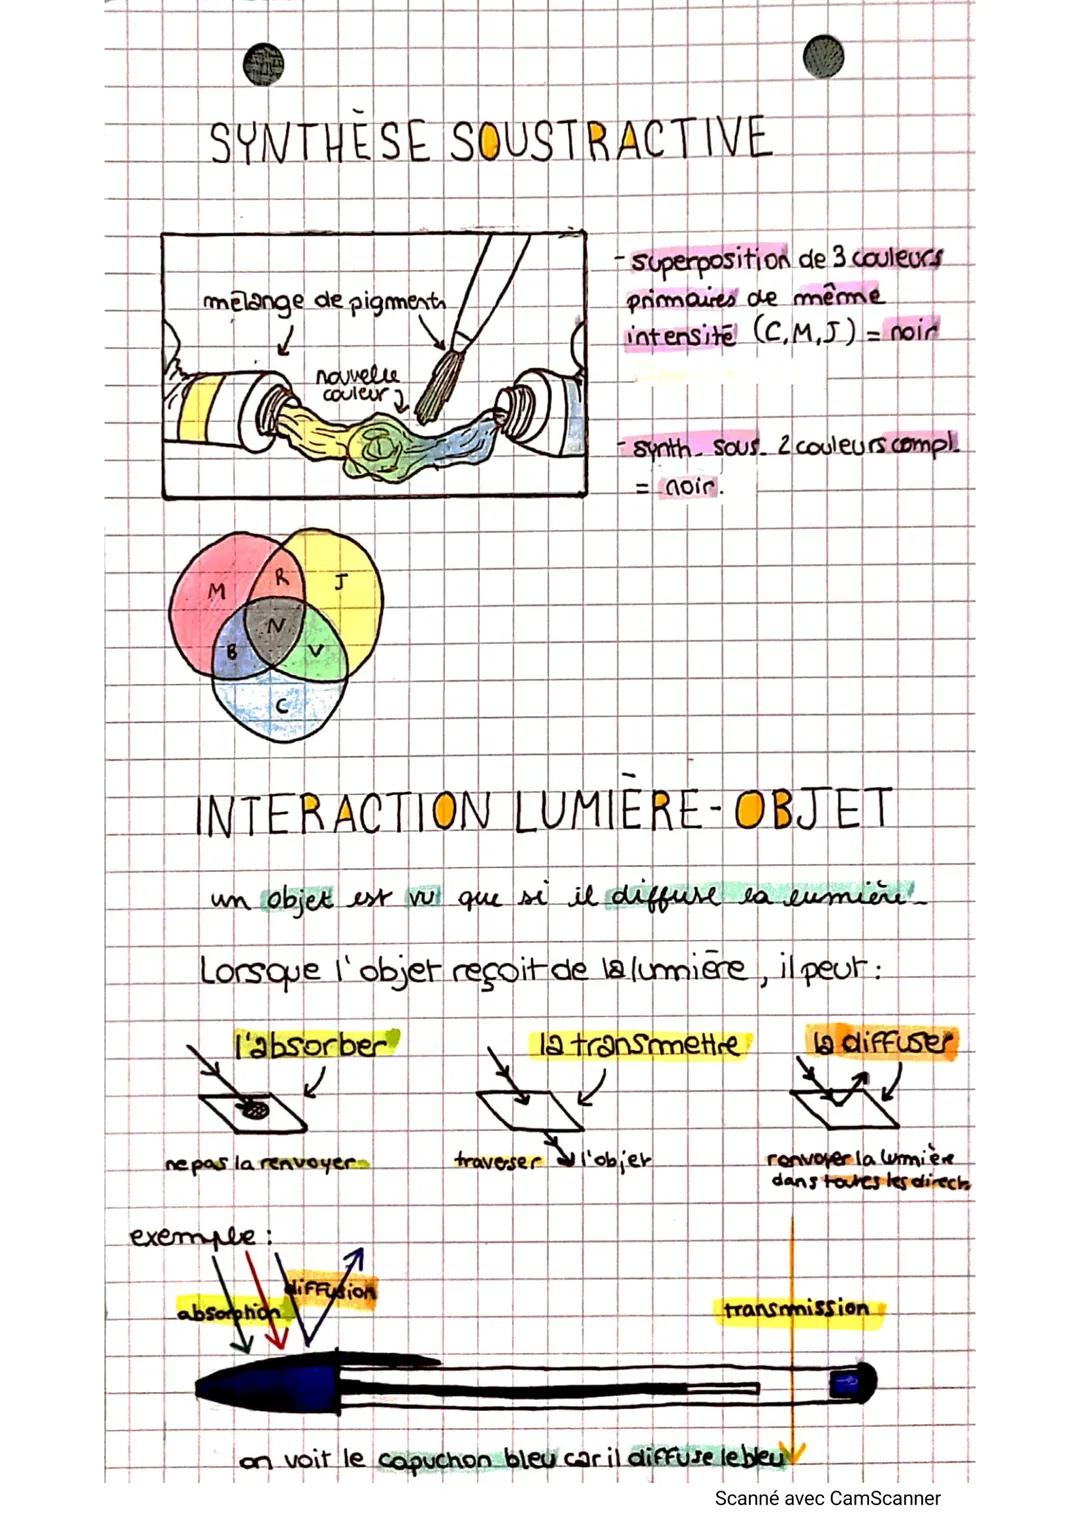 SYNTHÈSE SOUSTRACTIVE
mélange de pigments
nouvelle
couleur
- superposition de 3 couleurs
primaires de même
intensité (C,M,J) = noir
- synth. sous. 2 couleurs compl.
= noir.
M
R
J
N
B
V
C
INTERACTION LUMIÈRE-OBJET
un objet est vu que si il diffuse la lumière.
Lorsque l'objet reçoit de la lumière, il peut :
l'absorber
la transmettre
la diffuser
ne pas la renvoyer
traverser l'objet
renvoyer la lumière
dans toutes les direct.
exemple :
diffusion
absorption
transmission
on voit le capuchon bleu car il diffuse le bleu
Scanné avec CamScanner